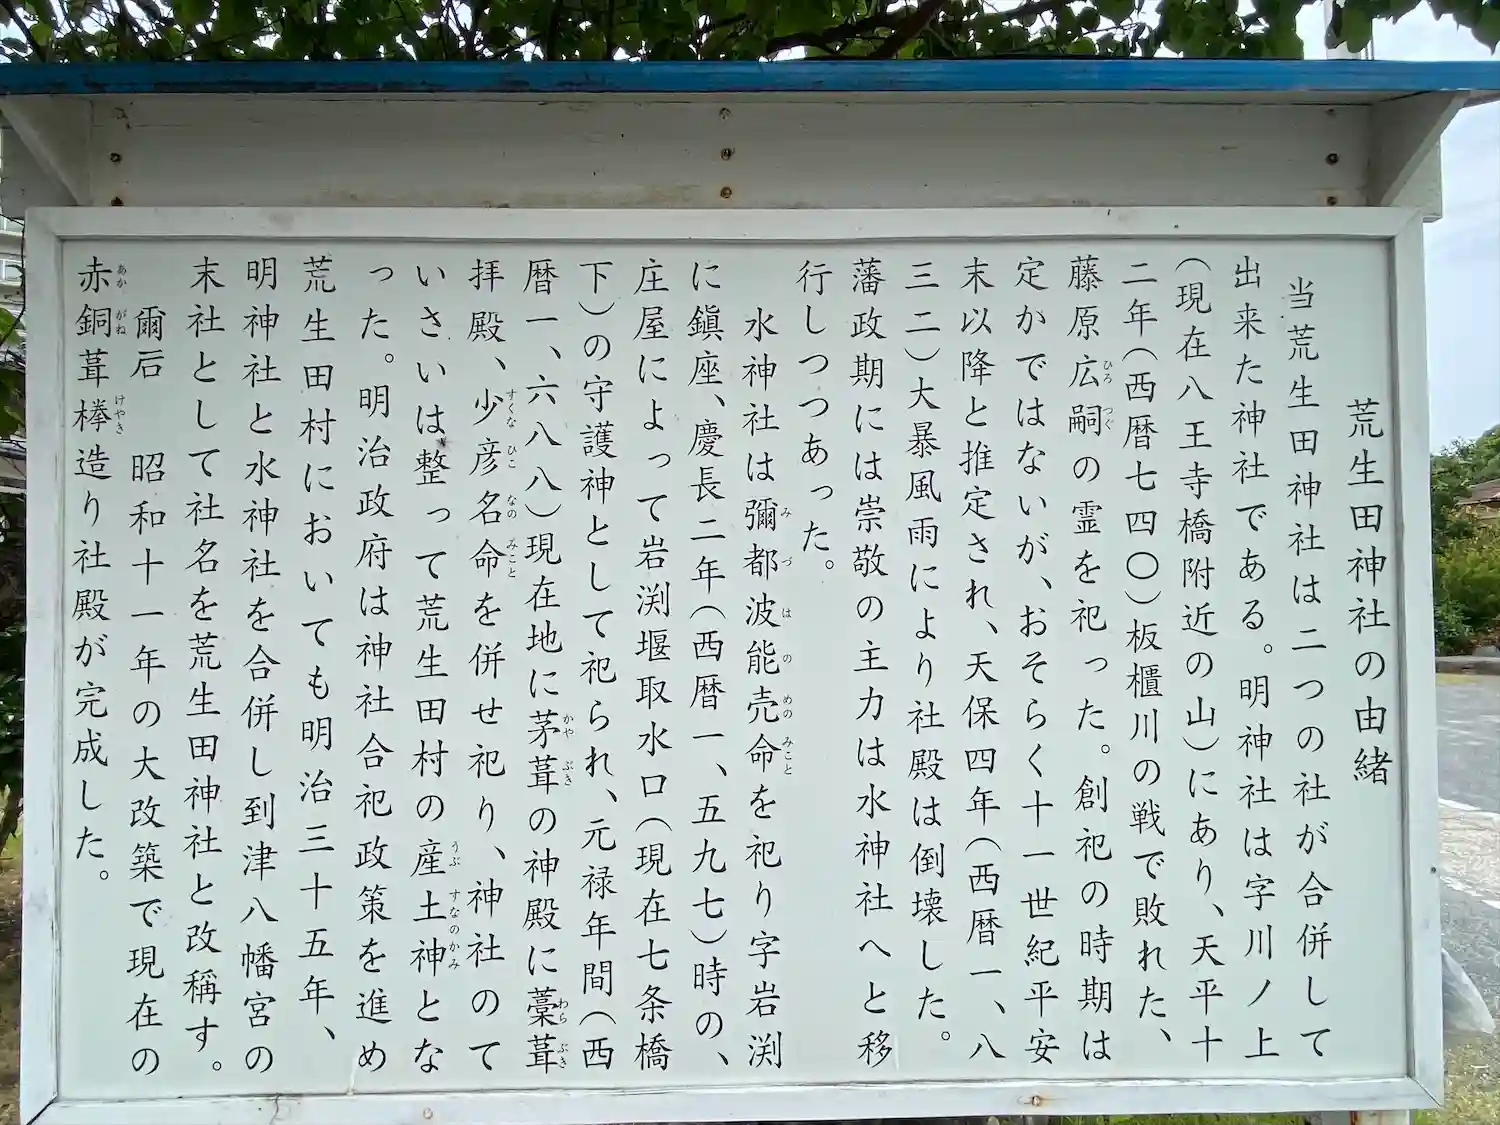 荒生田神社の由緒
当荒生田神社は二つの社が合併して
出来た神社である。明神社は字川ノ上
（現在八王寺橋附近の山）にあり、天平十
二年（西暦七四〇）板櫃川の戦で敗れた、
藤原広嗣の霊を祀った。創祀の時期は
定かではないが、おそらく十一世紀平安
末以降と推定され、天保四年（西暦一、八
三二）大暴風雨により社殿は倒壊した。
藩政期には崇敬の主力は水神社へと移
行しつつあった。
水神社は彌都波能売命を祀り字岩渕
に鎮座、慶長二年（西暦一、五九七）時の、
庄屋によって岩渕堰取水口（現在七条橋
下）の守護神として祀られ、元禄年間（西
暦一、六八八）現在地に茅葺の神殿に藁葺
拝殿、少彦名命を併せ祀り、神社のて
いさいは整って荒生田村の産土神とな
った。明治政府は神社合祀政策を進め
荒生田村においても明治三十五年、
明神社と水神社を合併し到津八幡宮の
末社として社名を荒生田神社と改稱す。
爾后　昭和十一年の大改築で現在の
赤銅葺欅造り社殿が完成した。